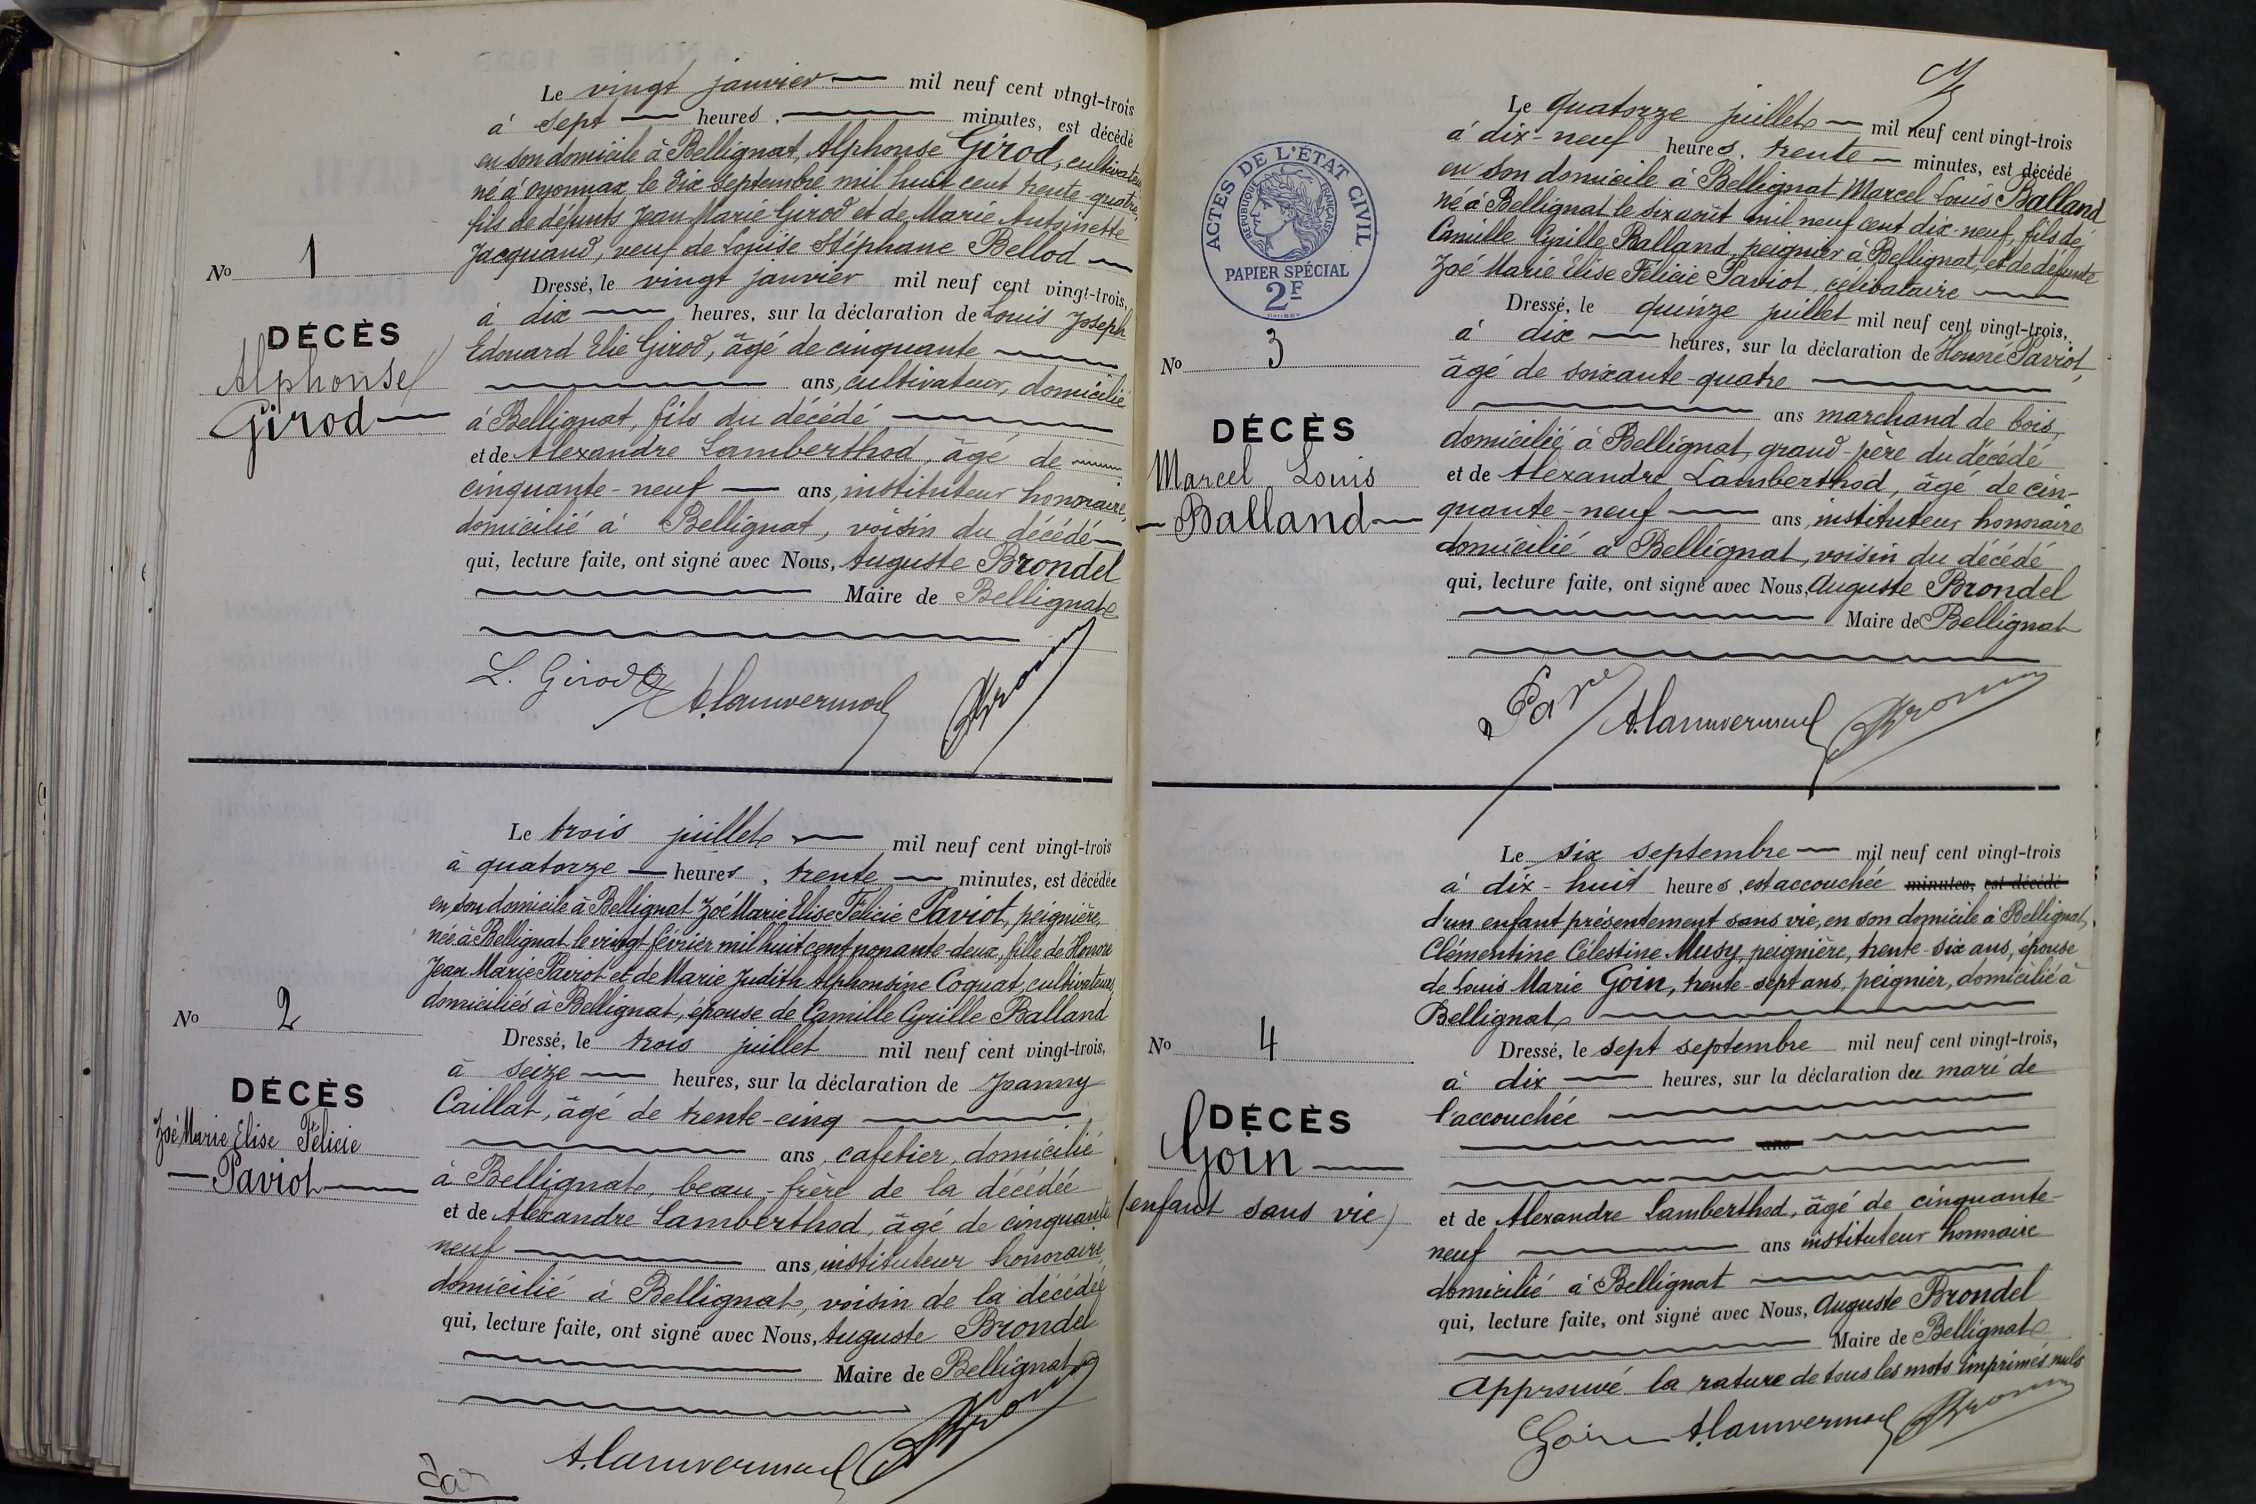 Le vingt janvier mil neuf cent vingt-trois
à sept heures, minutes, est décédé
en son domicile à Bellignat, Alphonse Girod, cultivateur
né à Oyonnax le dix septembre mil huit cent trente-quatre,
fils de défunts Jean Marie Girod et de Marie Antoinette
Jacquand, veuf de Louise Stéphane Bellod
No 1
Dressé, le vingt janvier mil neuf cent vingt-trois,
à dix heures, sur la déclaration de Louis Joseph
DÉCÈS
Edouard Elie Girod, âgé de cinquante
Alphonse
ans, cultivateur, domicilié
Girod
à Bellignat, fils du décédé
et de Alexandre Lamberthod, âgé de
cinquante-neuf ans, instituteur honoraire,
domicilié à Bellignat, voisin du décédé
qui, lecture faite, ont signé avec Nous, Auguste Brondel
Maire de Bellignat
L. Girod
Le trois juillet mil neuf cent vingt-trois
à quatorze heures, trente minutes, est décédée
en son domicile à Bellignat Zoé Marie Elise Félicie Paviot, peignière,
née à Bellignat le vingt février mil huit cent nonante-deux, fille de Honoré
Jean Marie Paviot et de Marie Judith Alphonsine Coquat, cultivateurs
domiciliés à Bellignat, épouse de Camille Cyrille Balland
No 2
Dressé, le trois juillet mil neuf cent vingt-trois,
à seize heures, sur la déclaration de Joanny
DÉCÈS
Caillat, âgé de trente-cinq
Zoé Marie Elise Félicie
ans, cafetier, domicilié
Paviot
à Bellignat, beau-frère de la décédée
et de Alexandre Lamberthod, âgé de cinquante
neuf ans, instituteur honoraire,
domicilié à Bellignat, voisin de la décédée
qui, lecture faite, ont signé avec Nous, Auguste Brondel
Maire de Bellignat
Le quatorze juillet mil neuf cent vingt-trois
à dix-neuf heures, trente minutes, est décédé
en son domicile à Bellignat Marcel Louis Balland
né à Bellignat le six août mil neuf cent dix-neuf, fils de
Camille Cyrille Balland, peignier à Bellignat, et de défunte
Zoé Marie Elise Félicie Paviot, célibataire
ACTES DE L'ÉTAT CIVIL
RÉPUBLIQUE FRANÇAISE
PAPIER SPÉCIAL
2F
No 3
Dressé, le quinze juillet mil neuf cent vingt-trois,
à dix heures, sur la déclaration de Honoré Paviot,
âgé de soixante-quatre
ans marchand de bois,
DÉCÈS
domicilié à Bellignat, grand-père du décédé
Marcel Louis
et de Alexandre Lamberthod, âgé de cin-
Balland
quante-neuf ans, instituteur honoraire
domicilié à Bellignat, voisin du décédé
qui, lecture faite, ont signé avec Nous, Auguste Brondel
Maire de Bellignat
Le six septembre mil neuf cent vingt-trois
à dix-huit heures est accouchée minutes, est décédé
d'un enfant présentement sans vie, en son domicile à Bellignat,
Clémentine Célestine Musy, peignière, trente-six ans, épouse
de Louis Marie Goin, trente-sept ans, peignier, domicilié à
Bellignat
No 4
Dressé, le sept septembre mil neuf cent vingt-trois,
à dix heures, sur la déclaration du mari de
DÉCÈS
l'accouchée
Goin
ans
(enfant sans vie)
et de Alexandre Lamberthod, âgé de cinquante-
neuf ans instituteur honoraire
domicilié à Bellignat
qui, lecture faite, ont signé avec Nous, Auguste Brondel
Maire de Bellignat
Approuvé la rature de tous les mots imprimés nuls
Goin